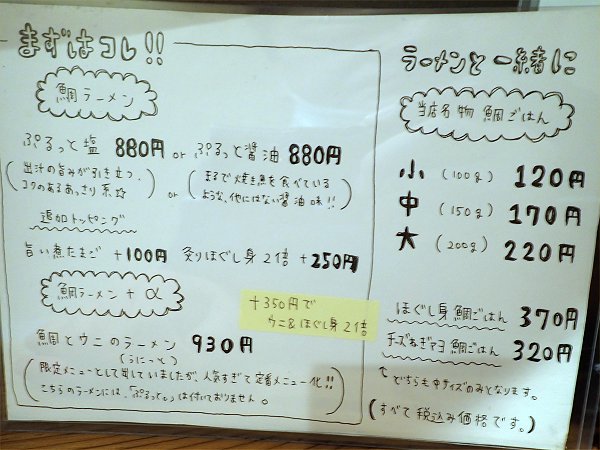 まずはコレ!!
鯛ラーメン
ぷるっと塩 880円 or ぷるっと醤油 880円
(出汁の旨みが引き立つ、
コクのあるあっさり系☆) or (まるで焼き魚を食べている
ような、他にはない醤油味!!)
追加トッピング
旨い煮たまご +100円 炙りほぐし身2倍 +250円
鯛ラーメン + α
+350円で
ウニ&ほぐし身2倍
鯛とウニのラーメン 930円
(うにっと)
(限定メニューとして出していましたが、人気すぎて定番メニュー化!!
こちらのラーメンには、「ぷるっと。」は付いておりません。)
ラーメンと一緒に
当店名物 鯛ごはん
小 (100g) 120円
中 (150g) 170円
大 (200g) 220円
ほぐし身鯛ごはん 370円
チーズねぎマヨ鯛ごはん 320円
どちらも中サイズのみとなります。
(すべて税込み価格です。)